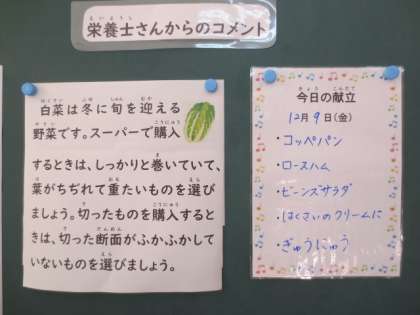 栄養士さんからのコメント
白菜は冬に旬を迎える
野菜です。スーパーで購入
するときは、しっかりと巻いていて、
葉がちぢれて重たいものを選び
ましょう。切ったものを購入すると
きは、切った断面がふかふかして
いないものを選びましょう。
今日の献立
12月9日(金)
・コッペパン
・ロースハム
・ビーンズサラダ
・はくさいのクリームに
・ぎゅうにゅう